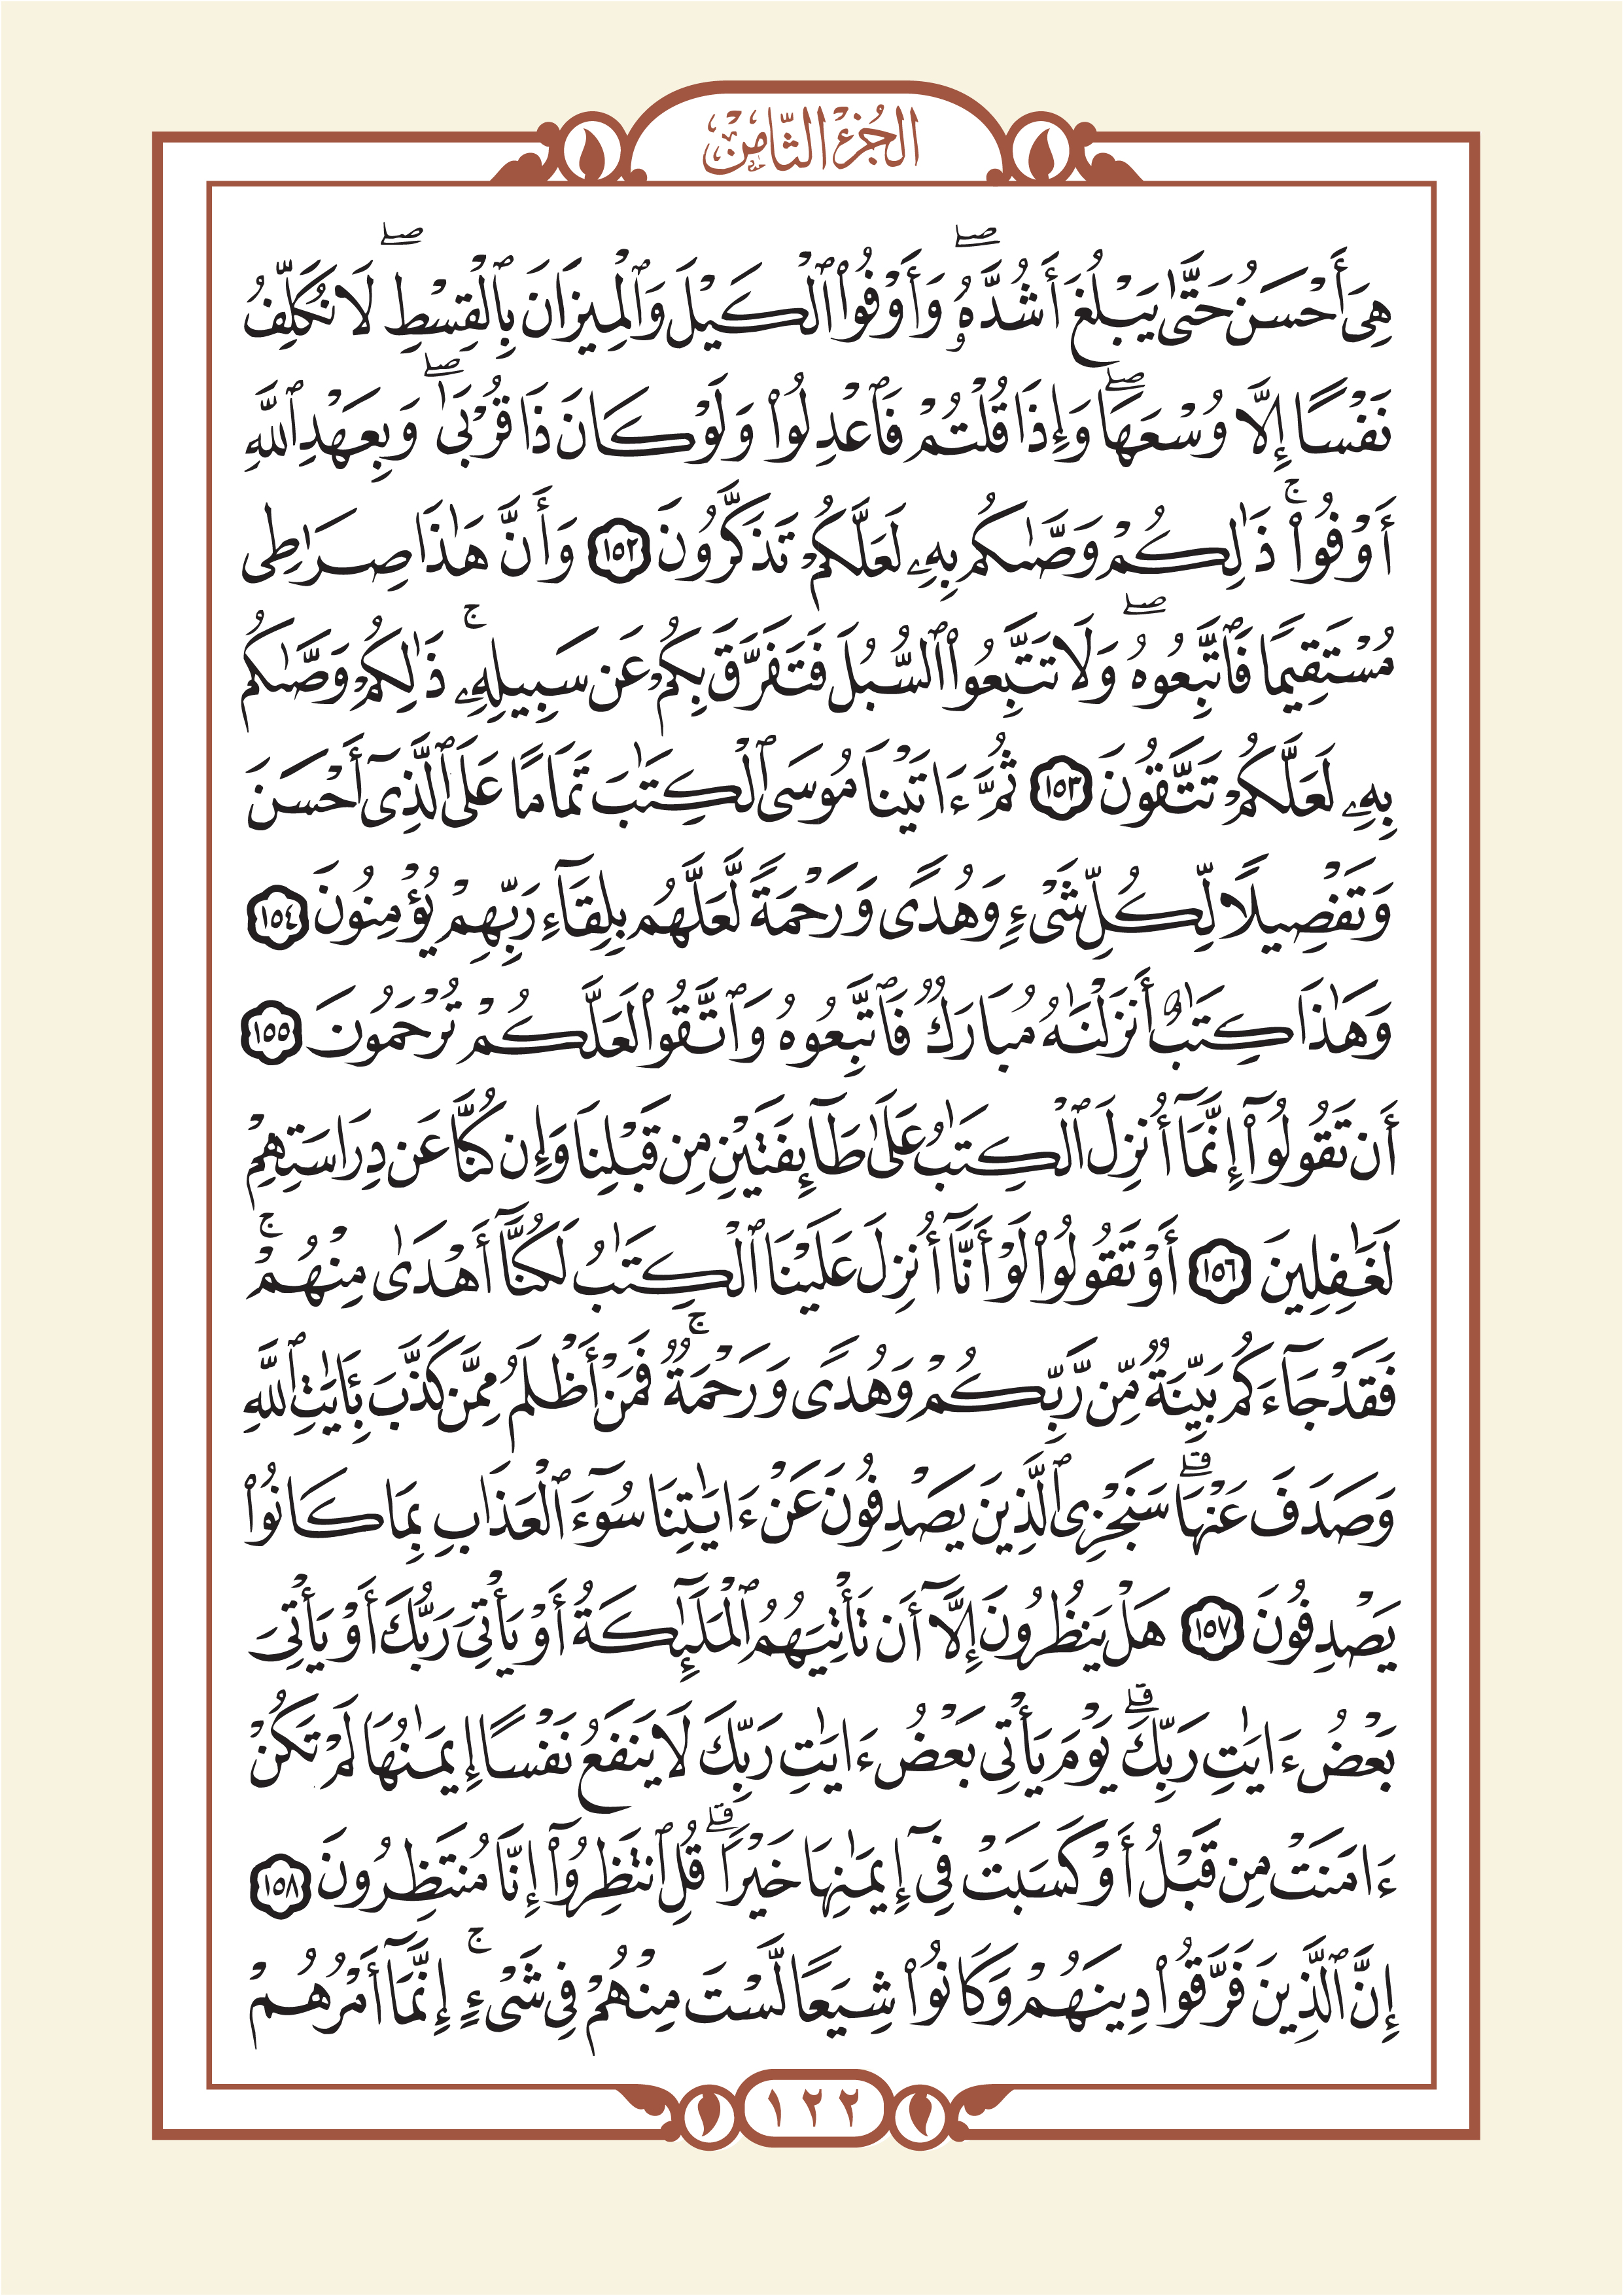 الجُزْءُ الثَّامِنْ
هِىَ أَحْسَنُ حَتَّىٰ يَبْلُغَ أَشُدَّهُۥ ۖ وَأَوْفُوا۟ ٱلْكَيْلَ وَٱلْمِيزَانَ بِٱلْقِسْطِ ۖ لَا نُكَلِّفُ
نَفْسًا إِلَّا وُسْعَهَا ۖ وَإِذَا قُلْتُمْ فَٱعْدِلُوا۟ وَلَوْ كَانَ ذَا قُرْبَىٰ ۖ وَبِعَهْدِ ٱللَّهِ
أَوْفُوا۟ ۚ ذَٰلِكُمْ وَصَّىٰكُم بِهِۦ لَعَلَّكُمْ تَذَكَّرُونَ ١٥٢ وَأَنَّ هَٰذَا صِرَٰطِى
مُسْتَقِيمًا فَٱتَّبِعُوهُ ۖ وَلَا تَتَّبِعُوا۟ ٱلسُّبُلَ فَتَفَرَّقَ بِكُمْ عَن سَبِيلِهِۦ ۚ ذَٰلِكُمْ وَصَّىٰكُم
بِهِۦ لَعَلَّكُمْ تَتَّقُونَ ١٥٣ ثُمَّ ءَاتَيْنَا مُوسَى ٱلْكِتَٰبَ تَمَامًا عَلَى ٱلَّذِىٓ أَحْسَنَ
وَتَفْصِيلًا لِّكُلِّ شَىْءٍ وَهُدًى وَرَحْمَةً لَّعَلَّهُم بِلِقَآءِ رَبِّهِمْ يُؤْمِنُونَ ١٥٤
وَهَٰذَا كِتَٰبٌ أَنزَلْنَٰهُ مُبَارَكٌ فَٱتَّبِعُوهُ وَٱتَّقُوا۟ لَعَلَّكُمْ تُرْحَمُونَ ١٥٥
أَن تَقُولُوٓا۟ إِنَّمَآ أُنزِلَ ٱلْكِتَٰبُ عَلَىٰ طَآئِفَتَيْنِ مِن قَبْلِنَا وَإِن كُنَّا عَن دِرَاسَتِهِمْ
لَغَٰفِلِينَ ١٥٦ أَوْ تَقُولُوا۟ لَوْ أَنَّآ أُنزِلَ عَلَيْنَا ٱلْكِتَٰبُ لَكُنَّآ أَهْدَىٰ مِنْهُمْ ۚ
فَقَدْ جَآءَكُم بَيِّنَةٌ مِّن رَّبِّكُمْ وَهُدًى وَرَحْمَةٌ ۚ فَمَنْ أَظْلَمُ مِمَّن كَذَّبَ بِـَٔايَٰتِ ٱللَّهِ
وَصَدَفَ عَنْهَا ۗ سَنَجْزِى ٱلَّذِينَ يَصْدِفُونَ عَنْ ءَايَٰتِنَا سُوٓءَ ٱلْعَذَابِ بِمَا كَانُوا۟
يَصْدِفُونَ ١٥٧ هَلْ يَنظُرُونَ إِلَّآ أَن تَأْتِيَهُمُ ٱلْمَلَٰٓئِكَةُ أَوْ يَأْتِىَ رَبُّكَ أَوْ يَأْتِىَ
بَعْضُ ءَايَٰتِ رَبِّكَ ۗ يَوْمَ يَأْتِى بَعْضُ ءَايَٰتِ رَبِّكَ لَا يَنفَعُ نَفْسًا إِيمَٰنُهَا لَمْ تَكُنْ
ءَامَنَتْ مِن قَبْلُ أَوْ كَسَبَتْ فِىٓ إِيمَٰنِهَا خَيْرًا ۗ قُلِ ٱنتَظِرُوٓا۟ إِنَّا مُنتَظِرُونَ ١٥٨
إِنَّ ٱلَّذِينَ فَرَّقُوا۟ دِينَهُمْ وَكَانُوا۟ شِيَعًا لَّسْتَ مِنْهُمْ فِى شَىْءٍ ۚ إِنَّمَآ أَمْرُهُمْ
١٢٢